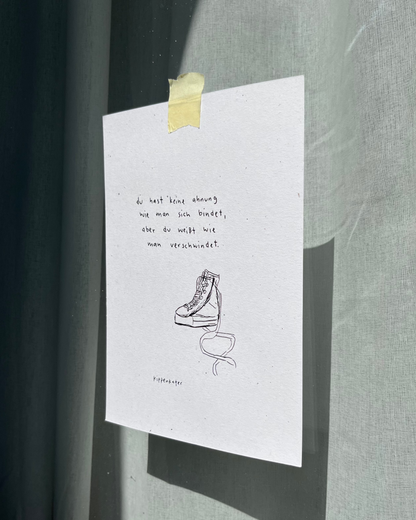 du hast keine ahnung
wie man sich bindet,
aber du weißt wie
man verschwindet.
Pippenhagen